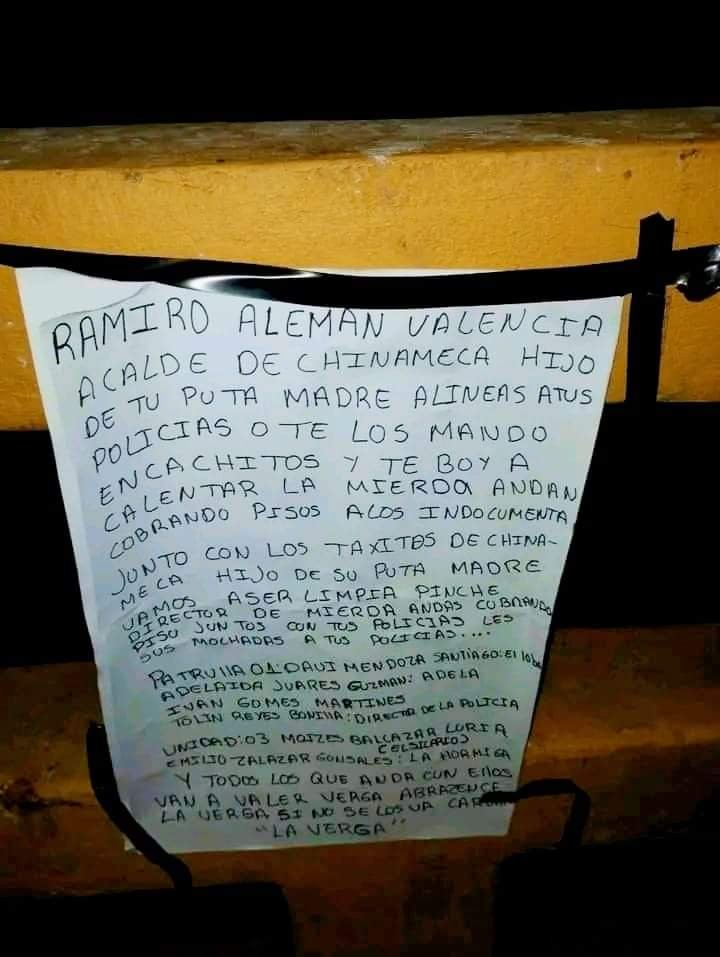 RAMIRO ALEMAN VALENCIA
ACALDE DE CHINAMECA HIJO
DE TU PUTA MADRE ALINEAS ATUS
POLICIAS O TE LOS MANDO
ENCACHITOS Y TE BOY A
CALENTAR LA MIERDA ANDAN
COBRANDO PISOS ALOS INDOCUMENTA
JUNTO CON LOS TAXITOS DE CHINA-
MECA HIJO DE SU PUTA MADRE
VAMOS ASER LIMPIA PINCHE
DIRECTOR DE MIERDA ANDAS COBRANDO
PISO JUNTOS CON TUS POLICIAS LES
SUS MOCHADAS A TUS POLICIAS....
PATRULLA 01: DAVI MENDOZA SANTIAGO: El
ADELAIDA JUARES GUZMAN: ADELA
IVAN GOMES MARTINES
TOLIN REYES BONILLA: DIRECTOR DE LA POLICIA
UNIDAD: 03 MOIZES BALCAZAR LURIA
EMILIO ZALAZAR GONSALES: LA HORMIGA
Y TODOS LOS QUE ANDA CON ELLOS
VAN A VALER VERGA ABRAZENCE
LA VERGA SI NO SE LOS VA
"LA VERGA"